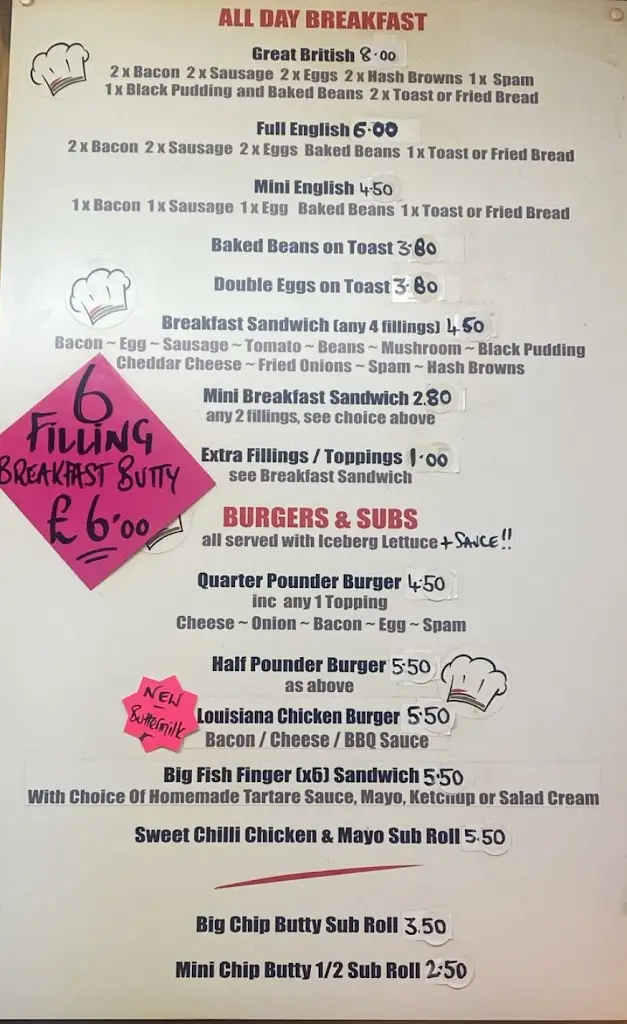 ALL DAY BREAKFAST
Great British 8.00
2 x Bacon 2 x Sausage 2 x Eggs 2 x Hash Browns 1 x Spam
1 x Black Pudding and Baked Beans 2 x Toast or Fried Bread
Full English 6.00
2 x Bacon 2 x Sausage 2 x Eggs Baked Beans 1 x Toast or Fried Bread
Mini English 4.50
1 x Bacon 1 x Sausage 1 x Egg Baked Beans 1 x Toast or Fried Bread
Baked Beans on Toast 3.80
Double Eggs on Toast 3.80
Breakfast Sandwich (any 4 fillings) 4.50
Bacon ~ Egg ~ Sausage ~ Tomato ~ Beans ~ Mushroom ~ Black Pudding
Cheddar Cheese ~ Fried Onions ~ Spam ~ Hash Browns
Mini Breakfast Sandwich 2.80
any 2 fillings, see choice above
Extra Fillings / Toppings 1.00
see Breakfast Sandwich
6
FILLING
BREAKFAST BUTTY
£6.00
BURGERS & SUBS
all served with Iceberg Lettuce + SAUCE!!
Quarter Pounder Burger 4.50
inc any 1 Topping
Cheese ~ Onion ~ Bacon ~ Egg ~ Spam
Half Pounder Burger 5.50
as above
NEW
Buttermilk
Louisiana Chicken Burger 5.50
Bacon / Cheese / BBQ Sauce
Big Fish Finger (x6) Sandwich 5.50
With Choice Of Homemade Tartare Sauce, Mayo, Ketchup or Salad Cream
Sweet Chilli Chicken & Mayo Sub Roll 5.50
Big Chip Butty Sub Roll 3.50
Mini Chip Butty 1/2 Sub Roll 2.50